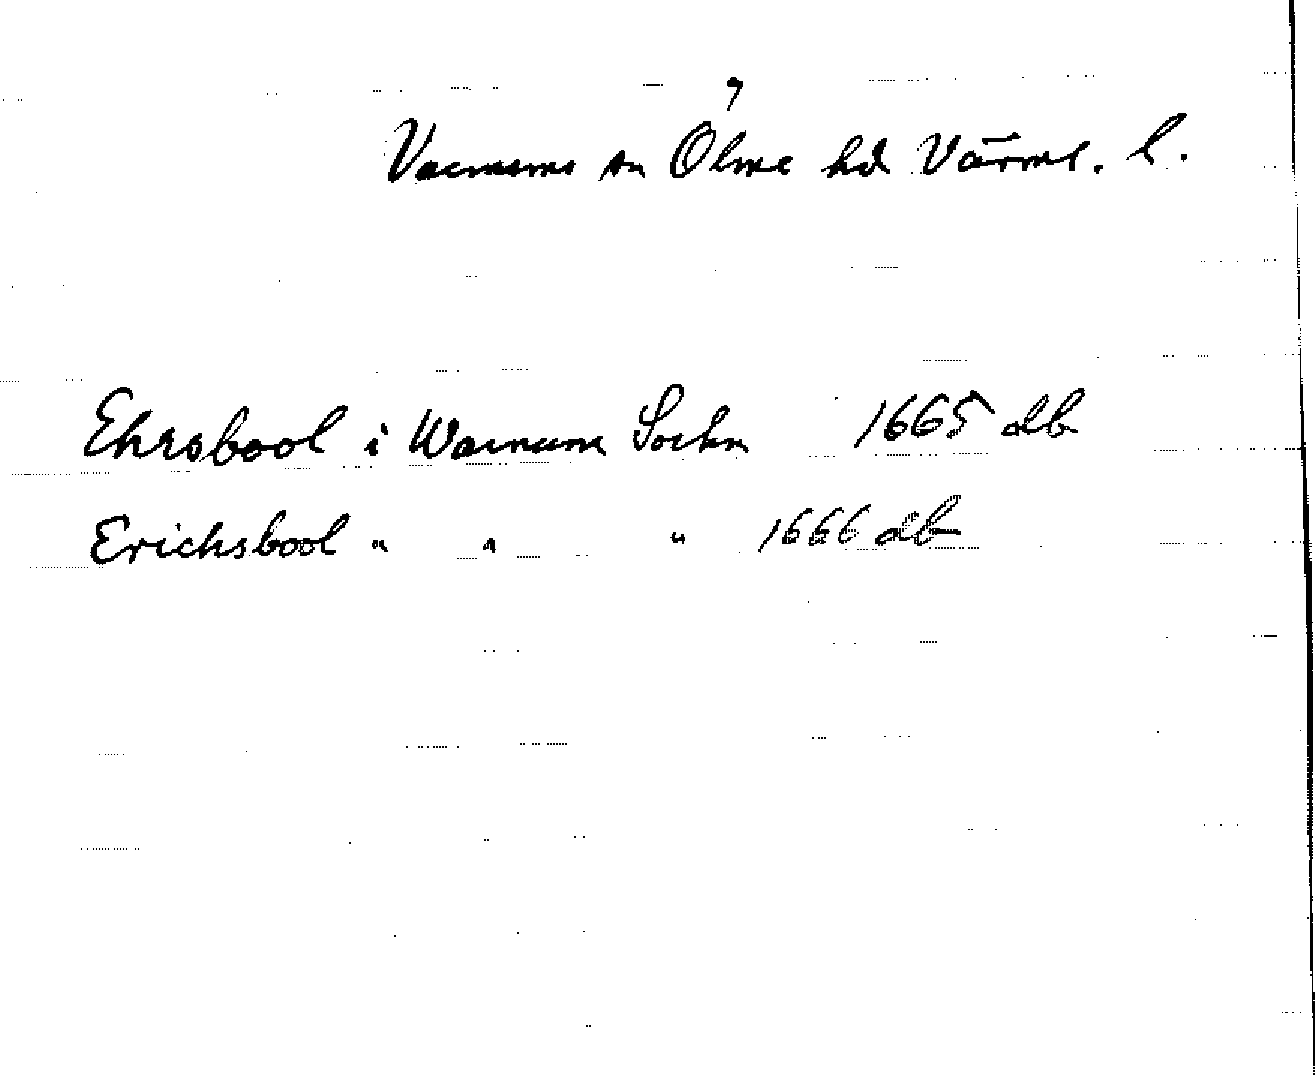 Varnums sn Ölme hd Värml. l.
Ehrsbool i Warnum Sochn 1665 db
Erichsbool " " " 1666 db